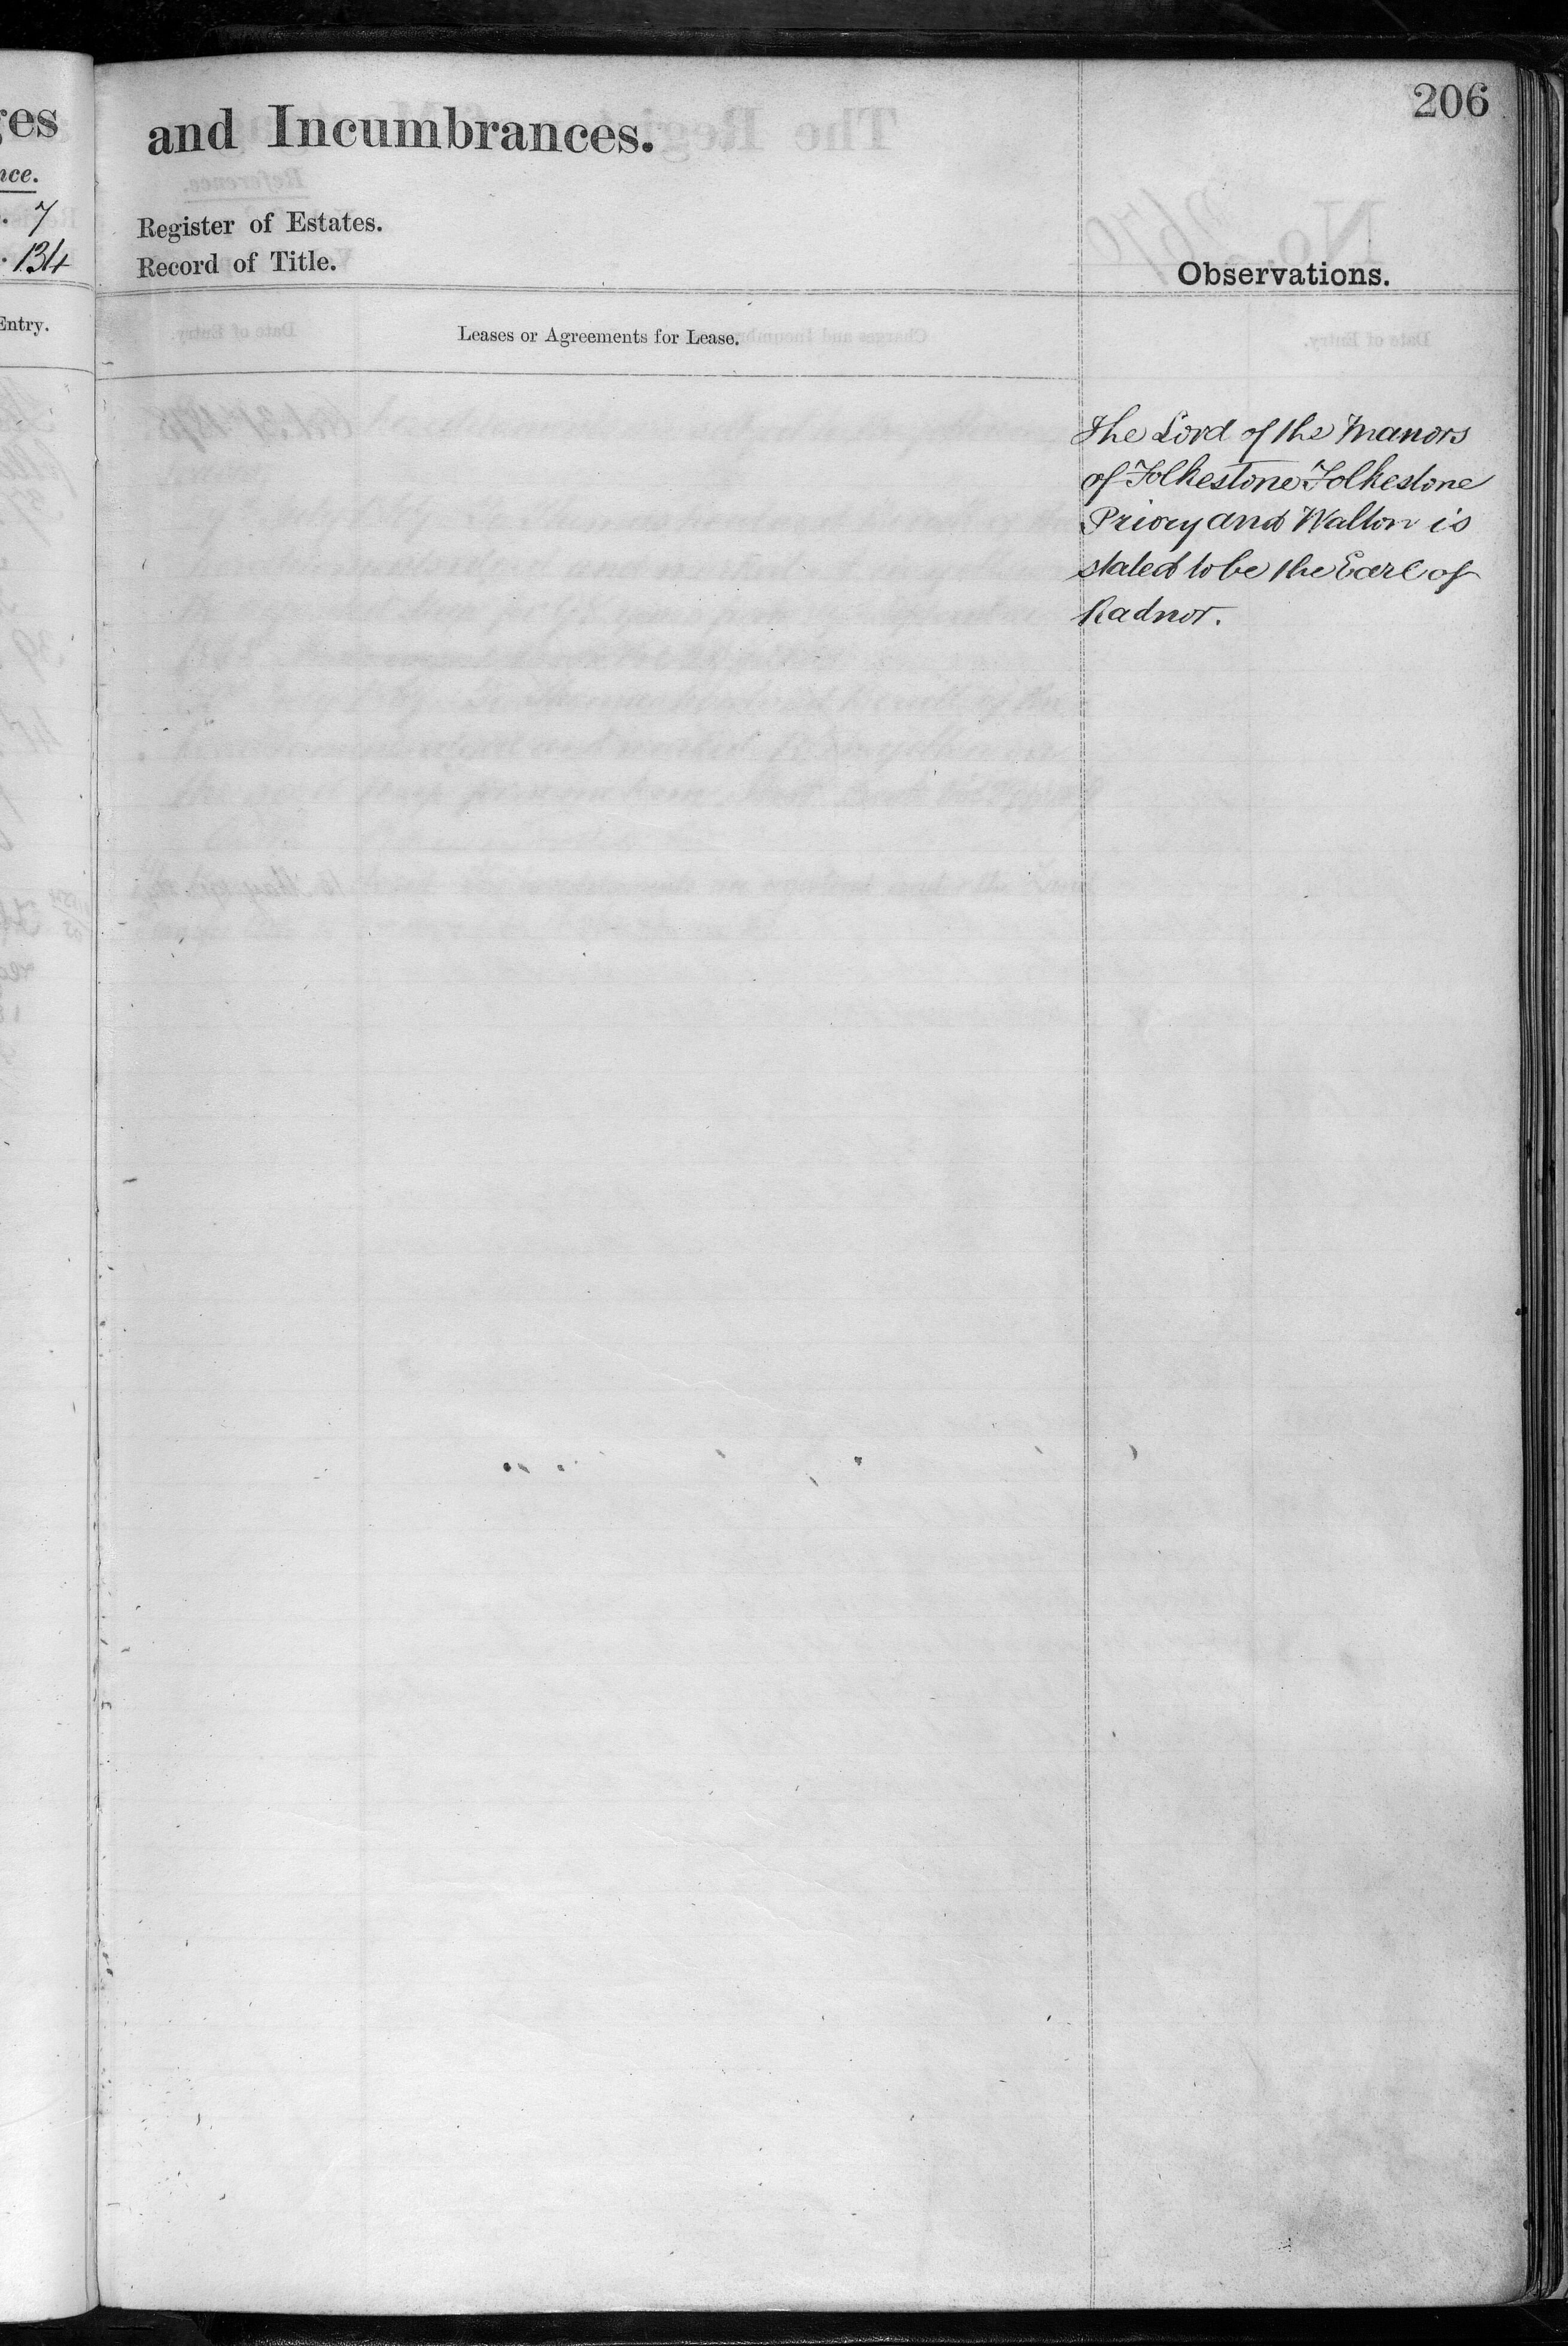 206
ges
and Incumbrances.
nce.
. 7
Register of Estates.
. 134
Record of Title.
Observations.
Entry.
Leases or Agreements for Lease.
The Lord of the Manors
of Folkestone Folkestone
Priory and Walton is
stated to be the Earl of
Radnor.